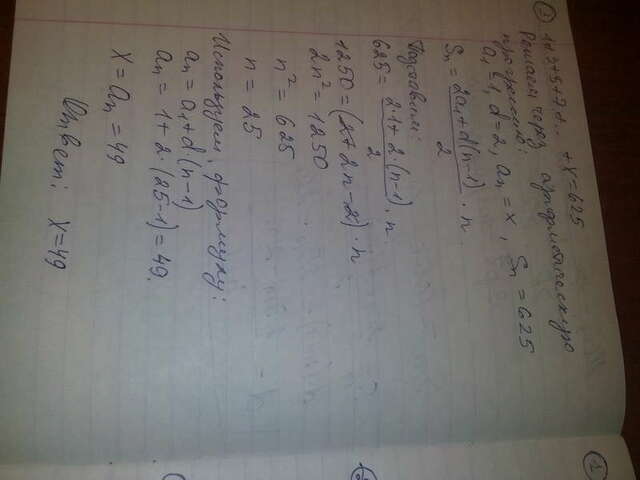 ① 1+3+5+7+.. +x=625
Решаем через арифметическую
прогрессию:
a₁=1, d=2, aₙ=x, Sₙ=625
Sₙ = (2a₁+d(n-1))/2 · n
Подставим:
625 = (2·1+2·(n-1))/2 · n
1250=(2+2n-2)·n
2n²=1250
n²=625
n=25
Используем формулу:
aₙ=a₁+d(n-1)
aₙ=1+2·(25-1)=49.
X=aₙ=49
Ответ: X=49
①